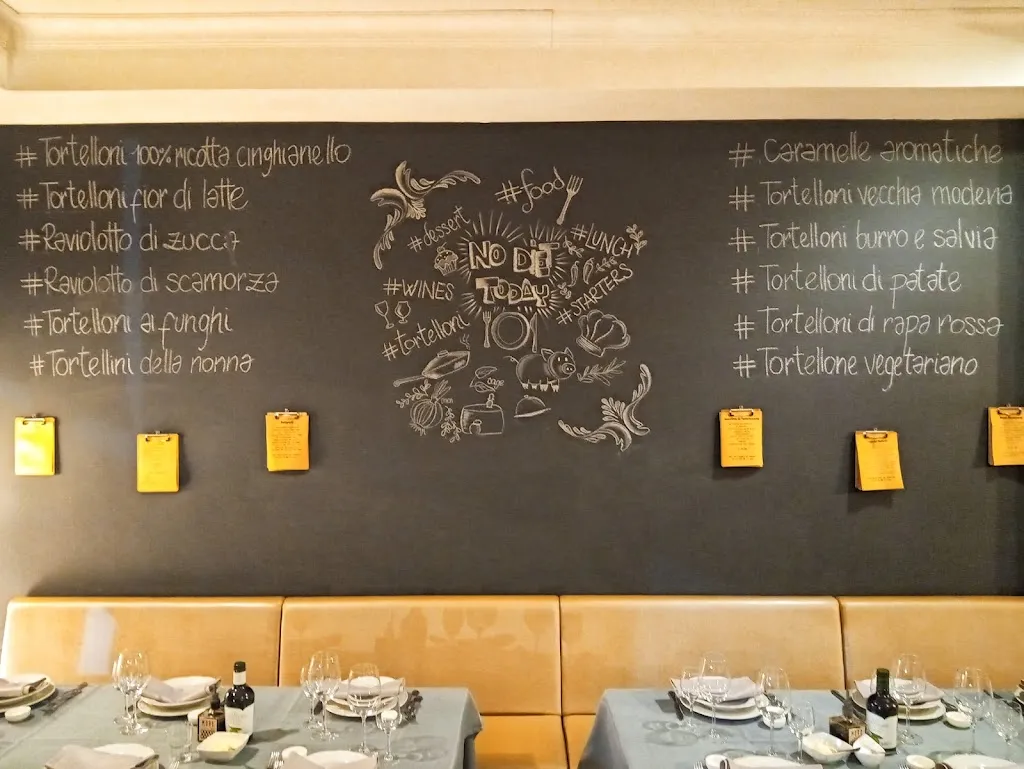 # Tortelloni 100% ricotta cinghianello
# Tortelloni fior di latte
# Raviolotto di zucca
# Raviolotto di scamorza
# Tortelloni ai funghi
# Tortellini della nonna
#food
#dessert
#LUNCH
NO DIET
TODAY
#WINES
#STARTERS
#tortelloni
# Caramelle aromatiche
# Tortelloni vecchia modena
# Tortelloni burro e salvia
# Tortelloni di patate
# Tortelloni di rapa rossa
# Tortellone vegetariano